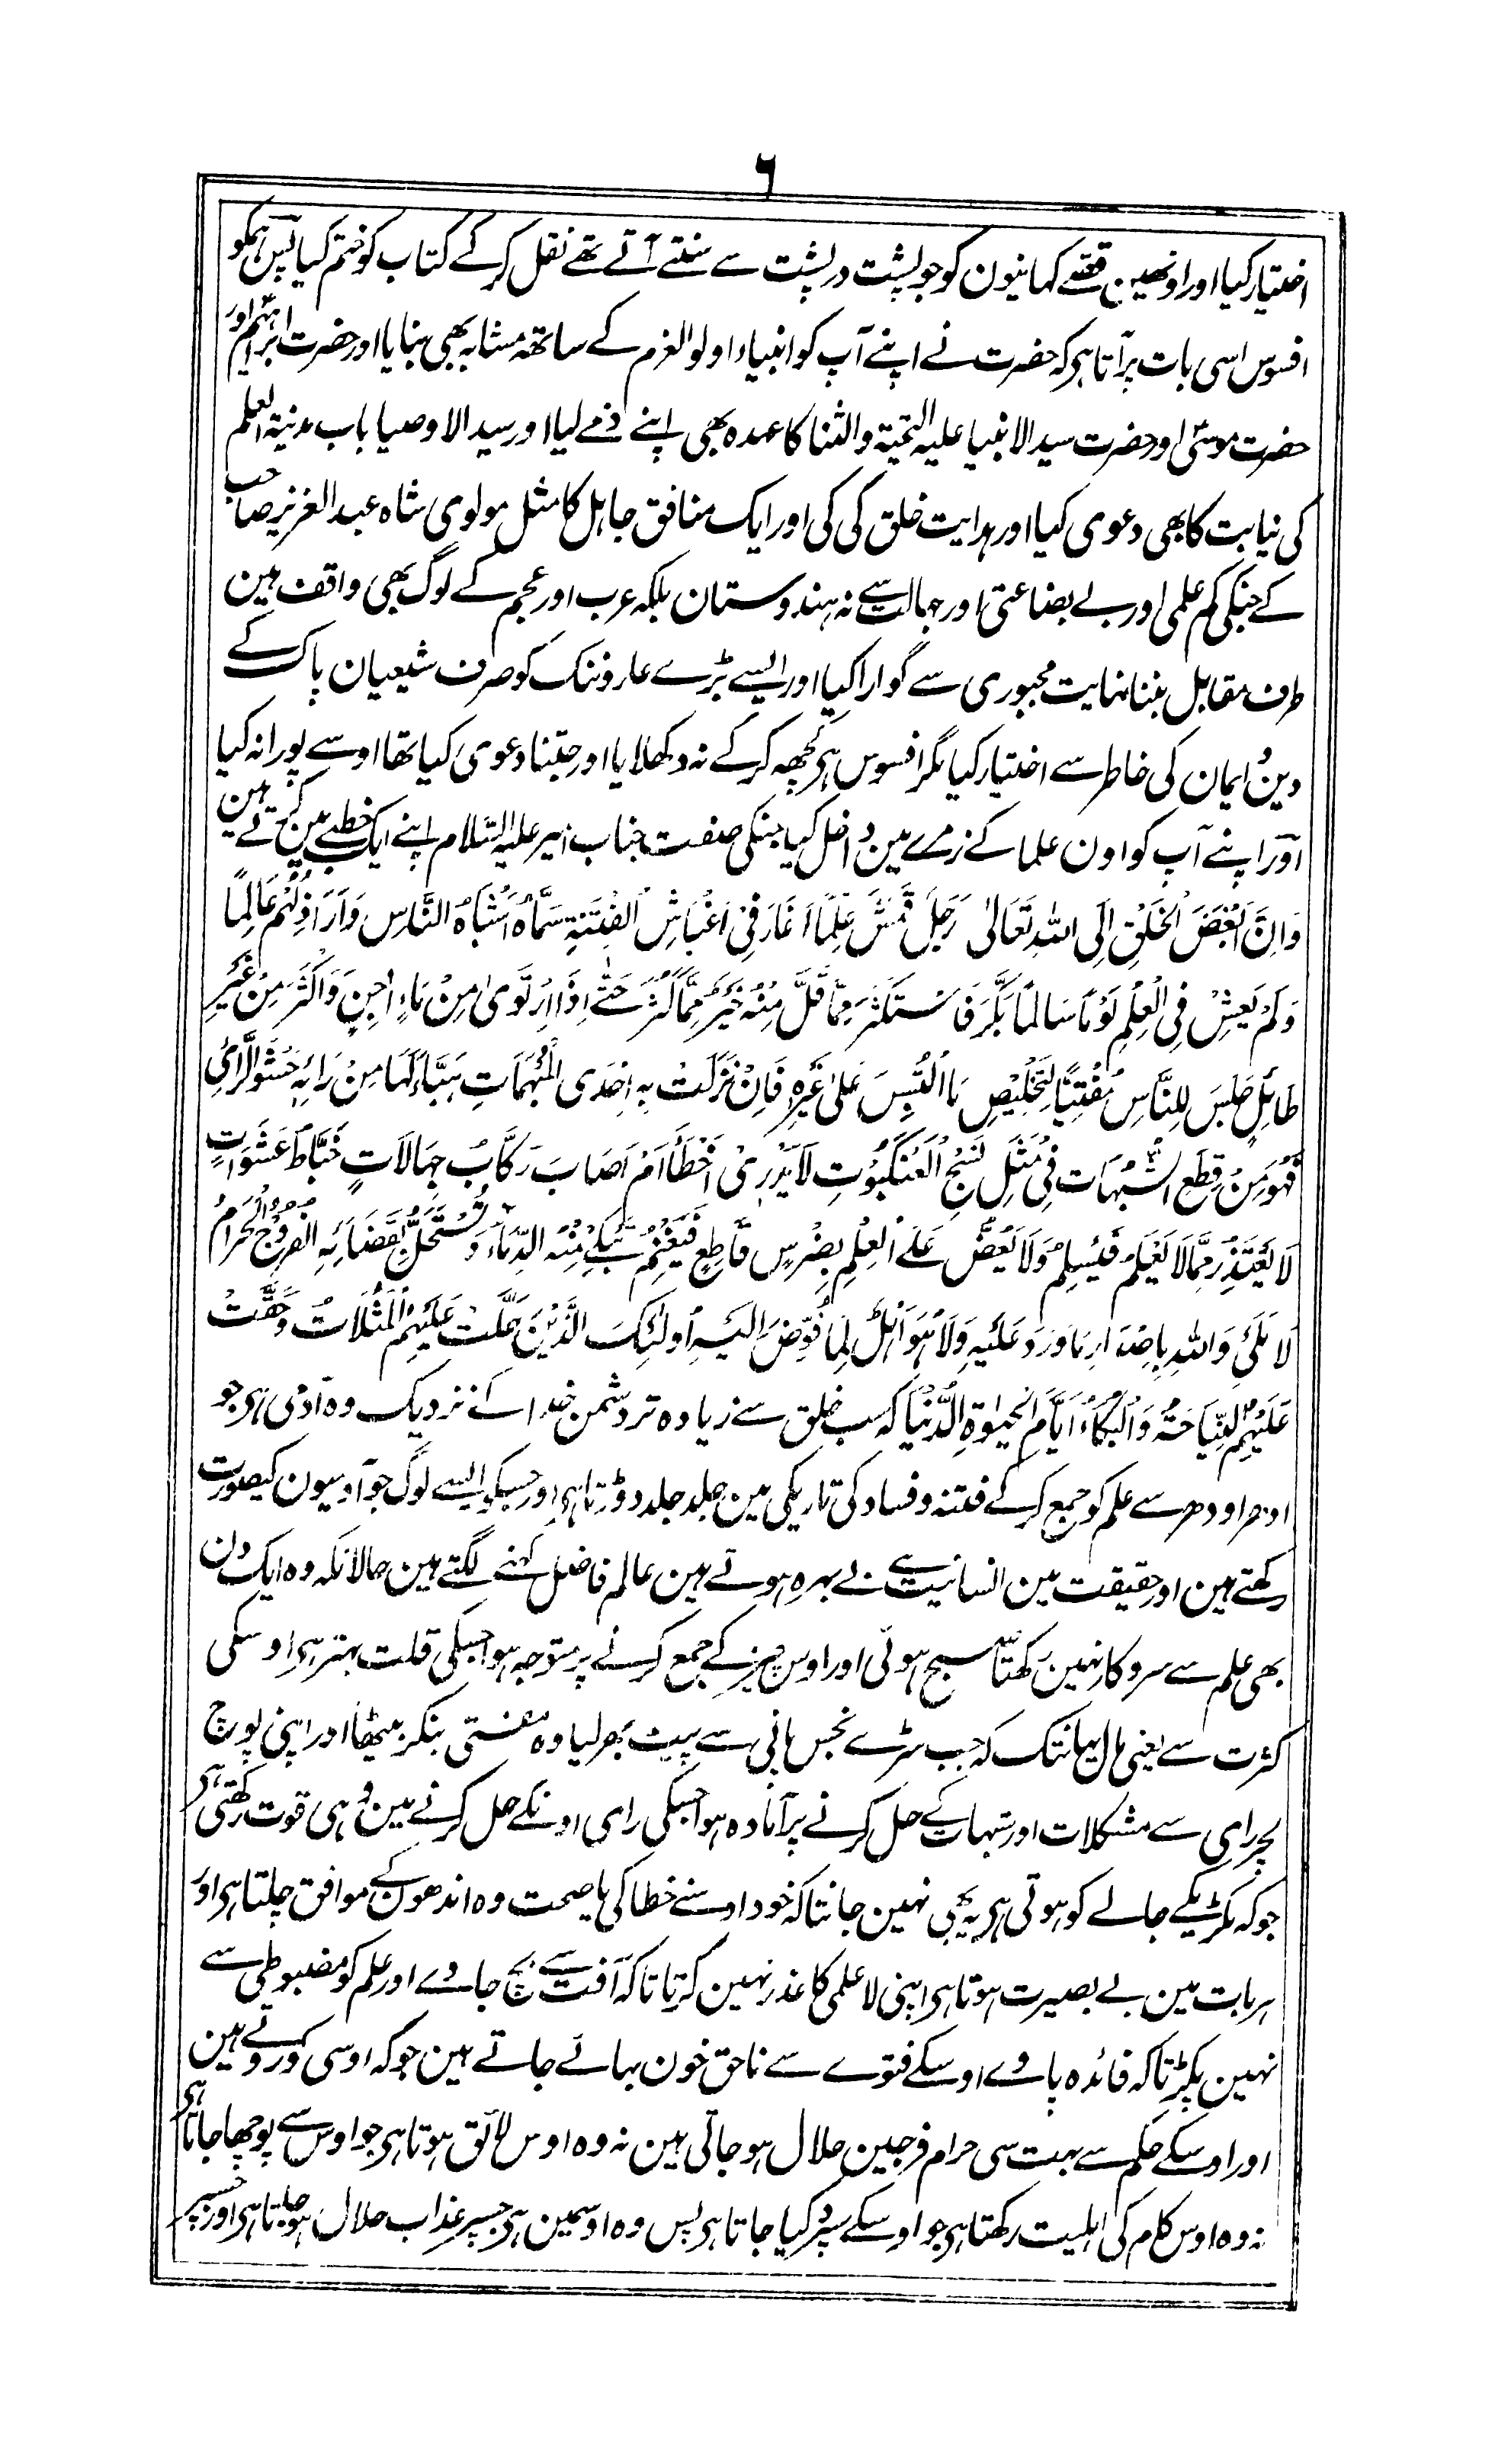 ٦
اختیار کیا اور اونھین قصّے کہانیون کو جو پشت در پشت سے سنتے آتے تھے نقل کر کے کتاب کو ختم کیا پس ہمکو
افسوس اسی بات پر آتا ہی کہ حضرت نے اپنے آپ کو انبیاء اولو العزم کے ساتھہ مشابہ بھی بنایا اور حضرت ابراہیم اور
حضرت موسیٰ اور حضرت سید الانبیا علیہ التحیۃ والثنا کا عہدہ بھی اپنے ذمے لیا اور سید الاوصیا باب مدینۃ العلم
کی نیابت کا بھی دعوی کیا اور ہدایت خلق کی کی اور ایک منافق جاہل کا مثل مولوی شاہ عبد العزیز صاحب
کے جنکی کم علمی اور بے بضاعتی اور جہالت سے نہ ہندوستان بلکہ عرب اور عجم کے لوگ بھی واقف ہین
طرف مقابل بننا نہایت مجبوری سے گوارا کیا اور ایسے بڑے عار و ننگ کو صرف شیعیان پاک کے
دین و ایمان کی خاطر سے اختیار کیا مگر افسوس ہی کچھہ کر کے نہ دکھلایا اور جتنا دعوی کیا تھا اوسے پورا نہ کیا
اور اپنے آپ کو اون علما کے زمرے مین داخل کیا جنکی صفت جناب امیر علیہ السّلام اپنے ایک خطبے مین کرتے ہین
وَاِنَّ اَبْغَضَ الْخَلْقِ اِلَی اللّٰہِ تَعَالیٰ رَجُلٌ قَمَشَ عِلْمًا اَغَارَ فِیْ اَغْبَاشِ الْفِتْنَۃِ سَمَّاہُ اَشْبَاہُ النَّاسِ وَاَرَاذِلُہُمْ عَالِمًا
وَلَمْ یَعِشْ فِی الْعِلْمِ یَوْمًا سَالِمًا بَکَّرَ فَاسْتَکْثَرَ مِمَّا قَلَّ مِنْہُ خَیْرٌ مِمَّا کَثُرَ حَتّٰے اِذَا ارْتَوٰی مِنْ مَاءٍ اٰجِنٍ وَاَکْثَرَ مِنْ غَیْرِ
طَائِلٍ جَلَسَ لِلنَّاسِ مُفْتِیًا لِتَخْلِیْصِ مَا الْتَبَسَ عَلیٰ غَیْرِہٖ فَاِنْ نَزَلَتْ بِہٖ اِحْدَی الْمُبْہَمَاتِ ہَیَّاءَ لَہَا مِنْ رَائِہٖ حَشْوَ الرَّائِ
فَہُوَ مِنْ قِطَعِ الشُّبُہَات فِیْ مِثْلِ نَسْجِ الْعَنْکَبُوْتِ لَا یَدْرِیْ اَخْطَأَ اَمْ اَصَابَ رَکَّابُ جَہَالَاتٍ خَبَّاطُ عَشَوَاتٍ
لَا یَعْتَذِرُ مِمَّا لَا یَعْلَمُ فَیَسْلِمُ وَلَا یَعَضُّ عَلَے الْعِلْمِ بِضِرْسٍ قَاطِعٍ فَیَغْنَمُ تَبْکِیْ مِنْہُ الدِّمَاءُ وَتُسْتَحَلُّ بِقَضَائِہِ الْفُرُوْجُ الْحَرَامُ
لَا مَلِیٌّ وَاللّٰہِ بِاِصْدَارِ مَا وَرَدَ عَلَیْہِ وَلَا ہُوَ اَہْلٌ لِمَا فُوِّضَ اِلَیْہِ اُولٰئِکَ الَّذِیْنَ حَلَّتْ عَلَیْہِمُ الْمَثُلَاتُ وَحَقَّتْ
عَلَیْہِمُ النِّیَاحَۃُ وَالْبُکَاءُ اَیَّامَ الْحَیٰوۃِ الدُّنْیَا کہ سب خلق سے زیادہ تر دشمن خدا کے نزدیک وہ آدمی ہی جو
ادھر اودھر سے علم کو جمع کر کے فتنہ و فساد کی تاریکی مین جلد جلد دوڑتا ہی اور جسکو ایسے لوگ جو آدمیون کیصورت
رکھتے ہین اور حقیقت مین انسانیت سے بے بہرہ ہوتے ہین عالم فاضل کہنے لگتے ہین حالانکہ وہ ایک دن
بھی علم سے سروکار نہین رکھتا صبح ہوئی اور اوس چیز کے جمع کرنے پر متوجہ ہوا جسکی قلت بہتر ہی اوسکی
کثرت سے یعنی مال یہانتک کہ جب سڑے نجس پانی سے پیٹ بھر لیا وہ مفتی بنکر بیٹھا اور اپنی پوچ
لچر رای سے مشکلات اور شبہات کے حل کرنے پر آمادہ ہوا جسکی رای اونکے حل کرنے مین وہی قوت رکھتی ہی
جو کہ مکڑیکے جالے کو ہوتی ہی یہ بھی نہین جانتا کہ خود اوسنے خطا کی یا صحت وہ اندھون کے موافق چلتا ہی اور
ہر بات مین بے بصیرت ہوتا ہی اپنی لاعلمی کا عذر نہین کرتا تاکہ آفت سے بچ جاوے اور علم کو مضبوطی سے
نہین پکڑتا کہ فائدہ پاوے اوسکے فتوے سے ناحق خون بہائے جاتے ہین جو کہ اوسی پر روتے ہین
اور اوسکے حکم سے بہت سی حرام فرجین حلال ہو جاتی ہین نہ وہ اوس لائق ہوتا ہی جو اوس سے پوچھا جاتا ہی
نہ وہ اوس کلام کی اہلیت رکھتا ہی جو اوسکے سپرد کیا جاتا ہی پس وہ اوسمین ہی جسپر عذاب حلال ہو جاتا ہی اور جسپر